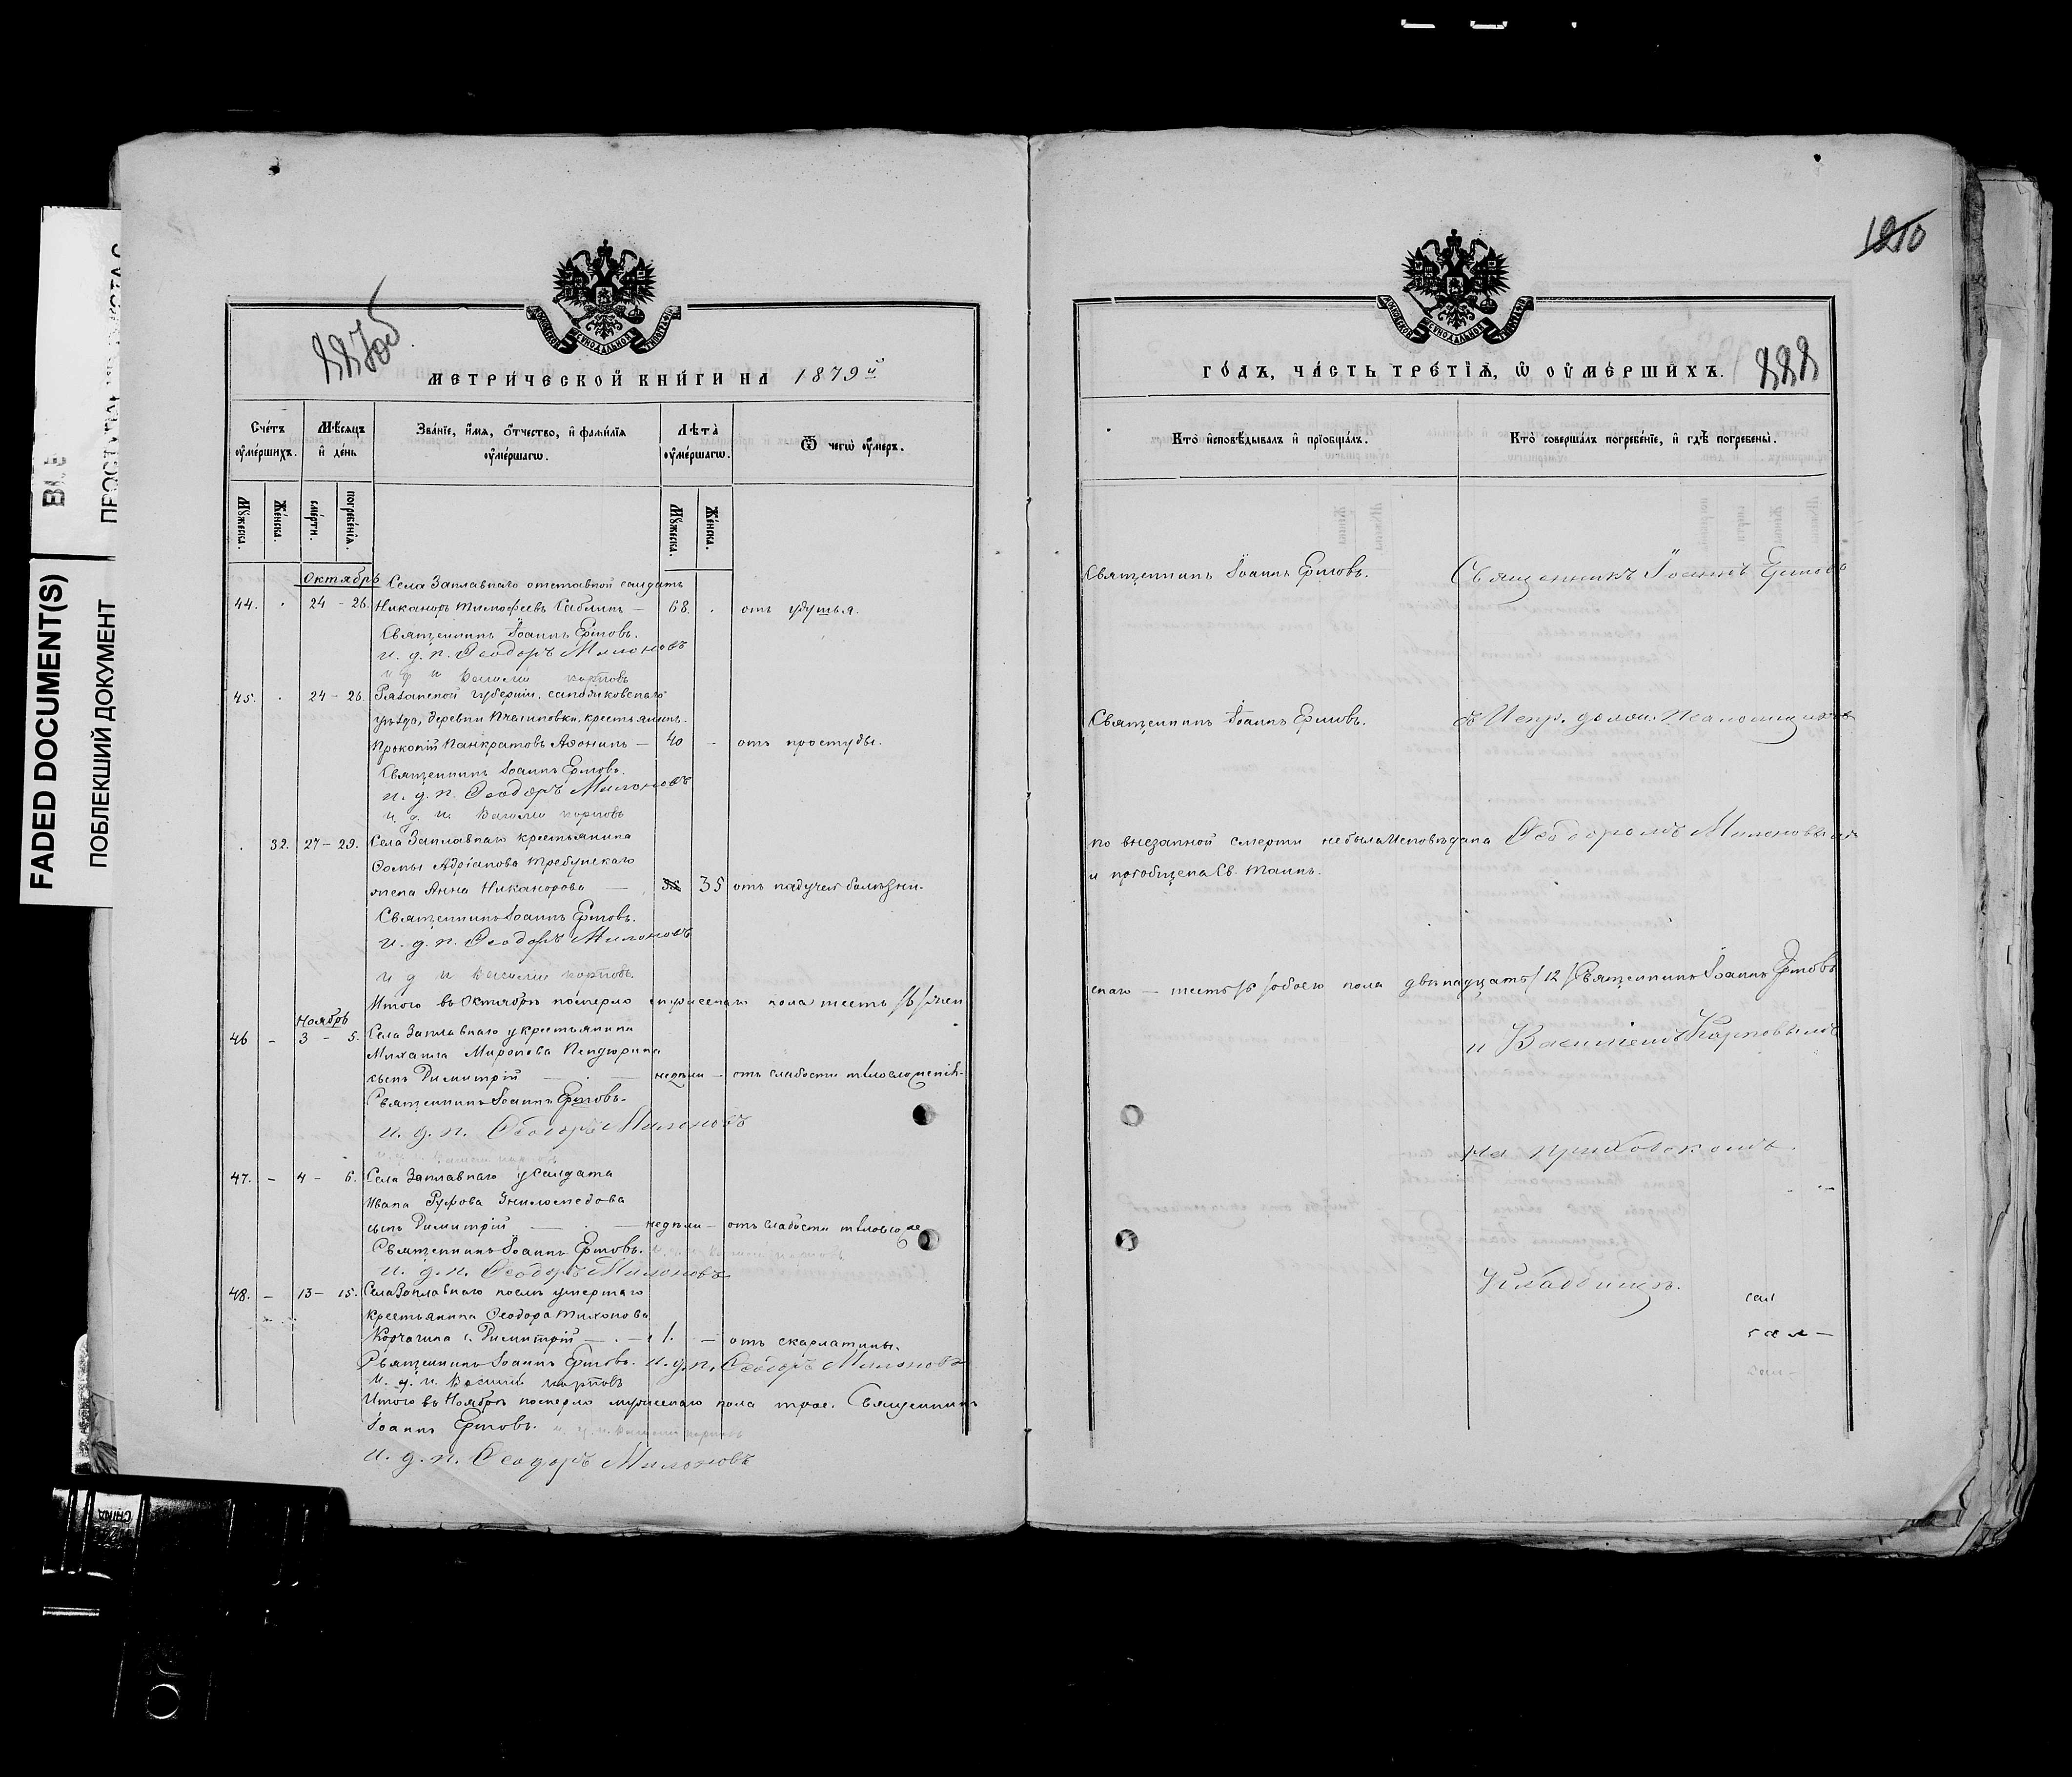 FADED DOCUMENT(S)
ПОБЛЕКШИЙ ДОКУМЕНТ
МОСКОВСКОЙ СѴНОДАЛЬНОЙ ТИПОГРАФІИ
МЕТРИ́ЧЕСКОЙ КНИ́ГИ НА 1879й
Сче́тъ ᲂу҆ме́ршихъ.
Мѣ́сяцъ и҆ де́нь
Зва́нїе, и҆́мя, ѻ҆́тчество, и҆ фами́лїя ᲂу҆ме́ршагѡ.
Лѣ́та ᲂу҆ме́ршагѡ.
Ѿ чегѡ̀ ᲂу҆́меръ.
Мꙋ́жеска.
Же́нска.
сме́рти.
погребе́нїя.
Мꙋ́жеска.
Же́нска.
Октябрь
Села Заплавнаго отставной солдатъ
44. 24 - 26. Никаноръ Тимофеевъ Саблинъ — 68. отъ удушья.
Священникъ Іоаннъ Ермовъ.
и. д. п. Ѳеодоръ Милоновъ
и д п Василий карповъ
45. 24 - 26. Рязанской губернии, сапожковскаго
уѣзда, деревни Пчелиновки, крестьянинъ.
Прокопій Панкратовъ Аѳонинъ — 40 - отъ простуды.
Священникъ Іоаннъ Ермовъ.
и. д. п. Ѳеодоръ Милоновъ
и д п Василий карповъ
32. 27 - 29. Села Заплавнаго крестьянина
Адріанова Требунскаго
жена Анна Никанорова — 35 отъ падучей болѣзни.
Священникъ Іоаннъ Ермовъ.
и. д. п. Ѳеодоръ Милоновъ
и д п Василий карповъ.
Итого въ Октябрѣ померло мужескаго пола шесть /6/ жен
Ноябрь
46 - 3 - 5. Села Заплавнаго у крестьянина
Михаила Миронова
сынъ Димитрій недѣли - отъ слабости тѣлосложенія.
Священникъ Іоаннъ Ермовъ.
и. д. п. Ѳеодоръ Милоновъ
47. - 4 - 6. Села Заплавнаго у солдата
Ивана Руфова
сынъ Димитрій недѣли - отъ слабости тѣлосложе
Священникъ Іоаннъ Ермовъ.
и. д. п. Ѳеодоръ Милоновъ
48. - 13 - 15. Села Заплавнаго послѣ умершаго
крестьянина Ѳеодора Тихонова
Корчагина с. Димитрій 1. - отъ скарлатины.
Священникъ Іоаннъ Ермовъ. и. д. п. Ѳеодоръ Милоновъ
и. д. п. Василий карповъ
Итого въ Ноябрѣ померло мужескаго пола трое. Священникъ
Іоаннъ Ермовъ. и. д. п. Василий карповъ
и. д. п. Ѳеодоръ Милоновъ
МОСКОВСКОЙ СѴНОДАЛЬНОЙ ТИПОГРАФІИ
ГО́ДЪ, ЧА́СТЬ ТРЕ́ТЇЯ, Ѡ҆ ОУ҆МЕ́РШИХЪ.
Кто̀ и҆сповѣ́дывалъ и҆ прїобща́лъ.
Кто̀ соверша́лъ погребе́нїе, и҆ гдѣ̀ погребены̀.
Священникъ Іоаннъ Ермовъ.
Священникъ Іоаннъ Ермовъ
Священникъ Іоаннъ Ермовъ.
съ Испр. долж. Псаломщиковъ
по внезапной смерти не была исповѣдана
и пріобщена Св. Таинъ.
Ѳеодоромъ Милоновымъ
скаго — шесть /6/ обоего пола двѣнадцать /12/ Священникъ Іоаннъ Ермовъ
и Василіемъ Карповымъ
на приходскомъ
кладбищѣ.